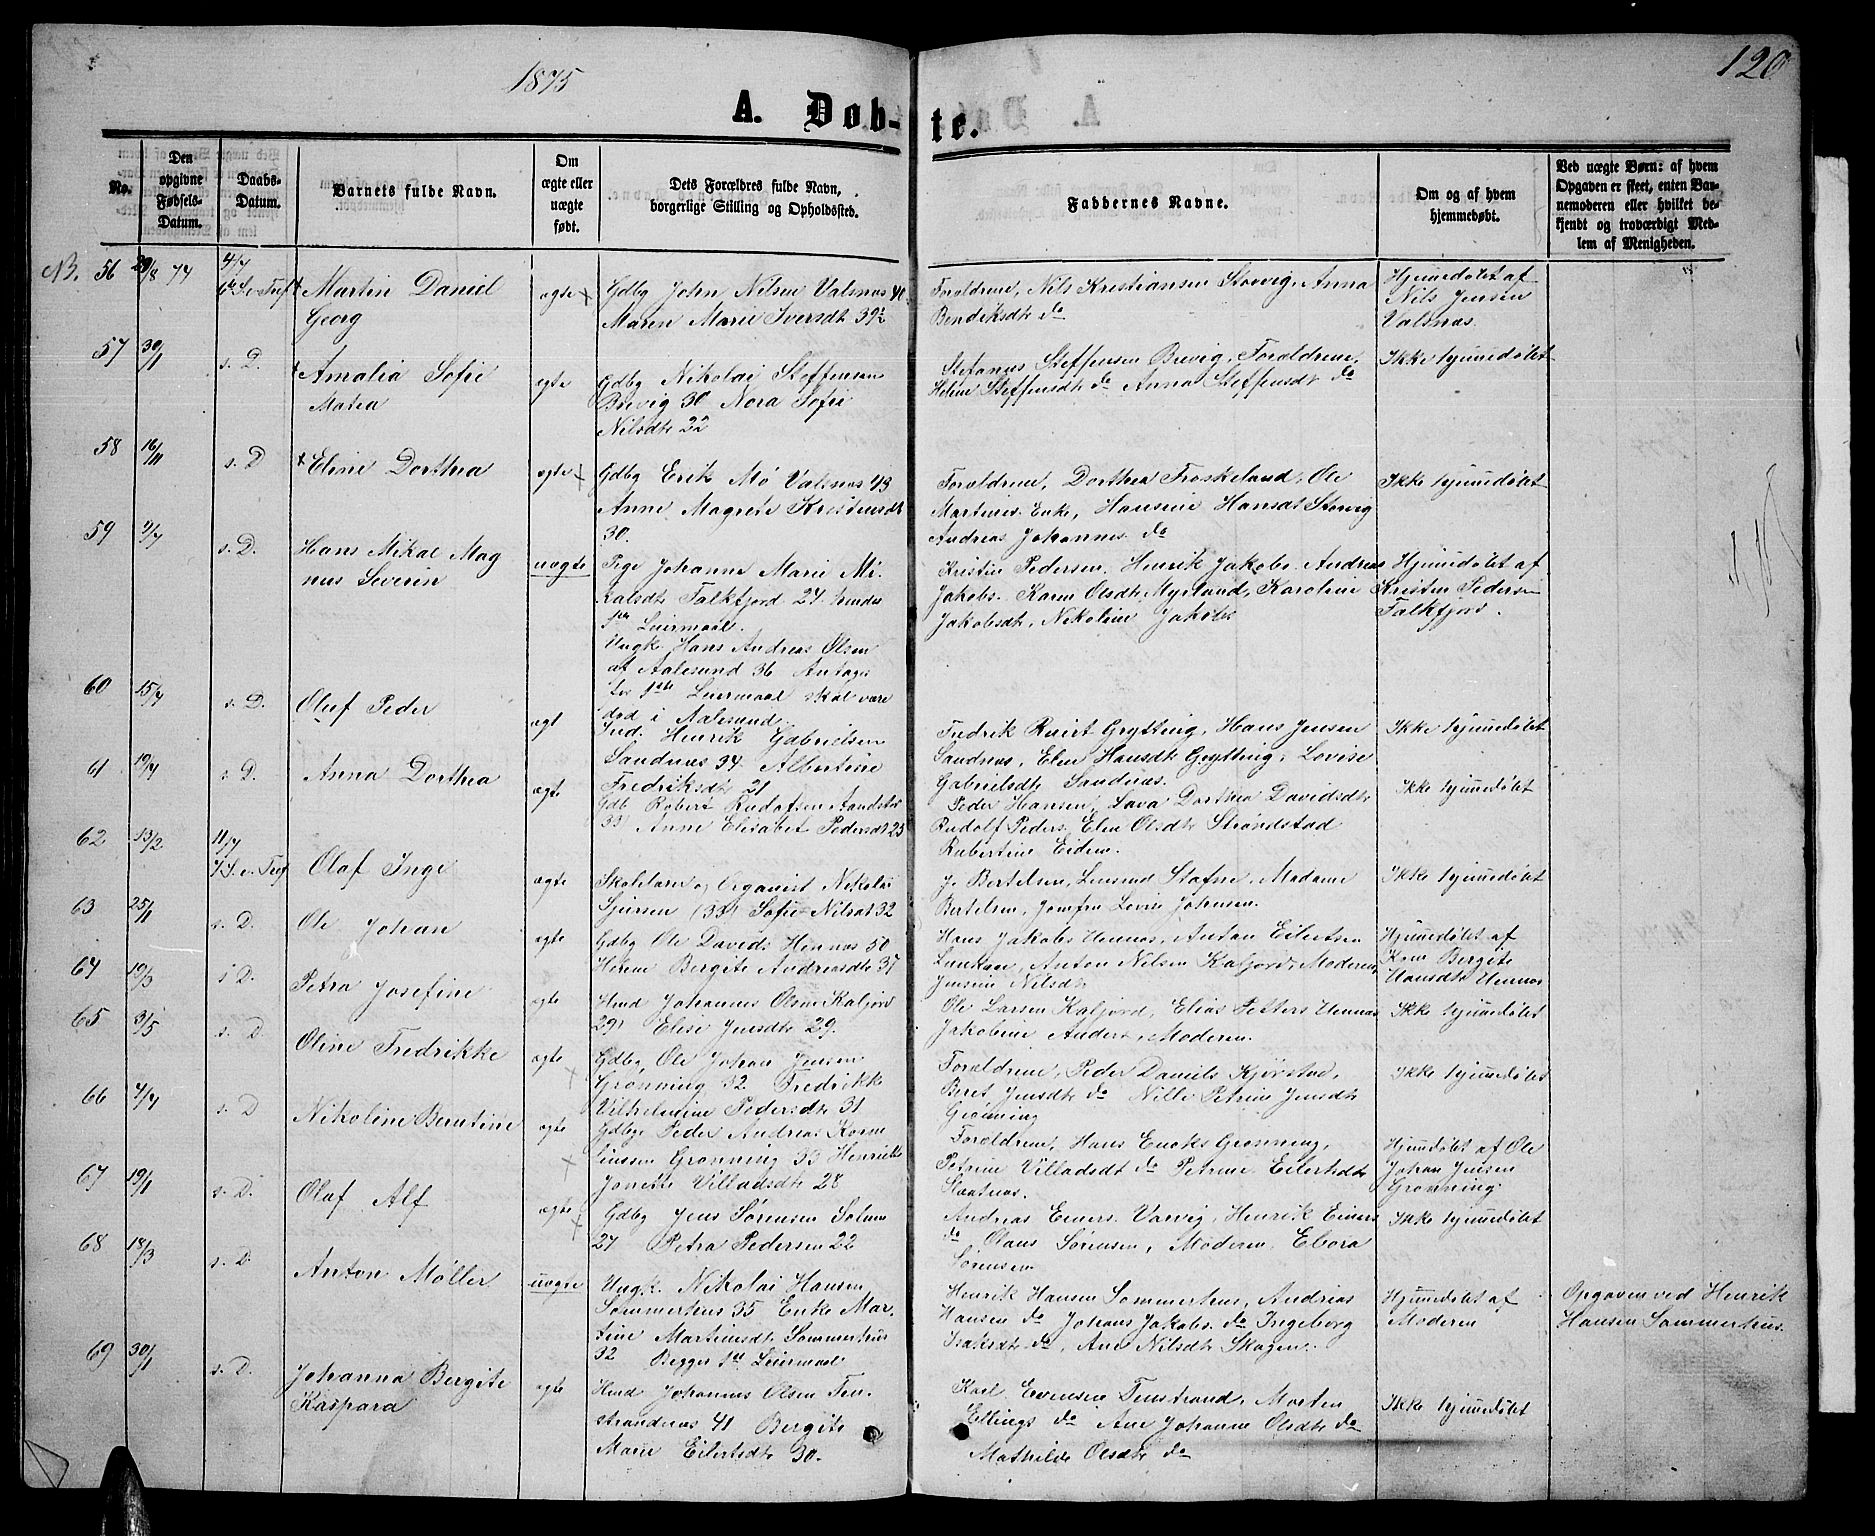 1875
120
A. Døb-
te.
No.
Den opgivne Fødsels-Datum.
Daabs-Datum.
Barnets fulde Navn.
Om ægte eller uægte født.
Dets Forældres fulde Navn, borgerlige Stilling og Opholdssted.
Faddernes Navne.
Om og af hvem hjemmedøbt.
Ved uægte Børn: af hvem Opgaven er skeet, enten Barnemoderen eller hvilket bekjendt og troværdigt Medlem af Menigheden.
56 29/8 74 4/7
Martin Daniel
Georg
ægte
Gdbg John Nilsen Valsnæs 40
Maren Marie Iversdt 39½
Forældrene, Nils Kristiansen Storvig, Anna
Bendiksdt do
Hjemmedøbt af
Nils Jensen
Valsnæs.
57 30/1 s. D.
Amalia Sofie
Matea
ægte
Gdbg Nikolai Steffensen
Brevig 30 Nora Sofie
Nilsdt 22
Stefanus Steffensen Brevig, Forældrene,
Helene Steffensdt do Anna Steffensdt do
Ikke hjemmedøbt
58 16/11 s. D
Eline Dorthea
ægte
Gdbg Erik Mø Valsnæs 43
Anne Magrete Kristensdt
30.
Forældrene, Dorthea Froskeland, Ole
Martinus. Enke, Hansine Hansdt Storvig
Andreas Johannes. do
Ikke hjemmedøbt
59 2/4 s. D.
Hans Mikal Mag
nus Severin
uægte
Pige Johanne Marie Mi-
kalsdt Falkfjord 24. hendes
1ste Leiermaal.
Ungk. Hans Andreas Olsen
af Aalesund 36 Antages
for 1ste Leiermaal skal være
død i Aalesund.
Kristen Pedersen. Henrik Jakobs. Andreas
Jakobs. Karen Olsdt Myrland, Karoline
Jakobsdt, Nikoline Jakobs
Hjemmedøbt af
Kristen Pedersen
Falkfjord.
60 15/4 s. D.
Oluf Peder
ægt
Ind. Henrik Gabrielsen
Sandnæs 34. Albertine
Fredriksdt 21
Fredrik Grytting, Hans Jensen
Sandnæs, Elen Hansdt Grytting, Lovise
Gabrielsdt Sandnæs.
Ikke hjemmedøbt
61 19/4 s. D.
Anna Dorthea
ægte
Gdb Robert Rudolfsen
33) Anne Elisabet Pedersdt 25
Peder Hansen, Lava Dorthea Davidsdt
Rudolf Peders. Elen Olsdt Strandstad
Rubertine Eidem.
Ikke hjemmedøbt
62 13/2 11/7
Olaf Inge
ægte
Skolelærer og Organist Nikolai
Sjursen (33) Sofie Nilsdt 32
J. Bertelsen, Madame
Bertelsen, Jomfru Johnsen.
Ikke hjemmedøbt
63 25/1 s. D.
Ole Johan
ægte
Gdbg Ole Davids Hennæs 50
Helene Bergite Andreasdt 37
Hans Jakobs Hennæs, Anton Eilertsen
Anton Nilsen Kaljord, Moderen,
Jensine Nilsdt
Hjemmedøbt af
Kone Bergite
Hansdt Hennæs
64 19/3 s D.
Petra Josefine
ægte
Hmd Johannes Olsen Kaljord
29) Elise Jensdt 29.
Ole Larsen Kaljord, Elias Petters Hennæs
Jakobine Anders, Moderen.
Ikke hjemmedøbt
65 3/5 s. D
Oline Fredrikke
ægte
Gdbg, Ole Johan Jensen
Grønning 32. Fredrikke
Vilhelmine Pedersdt 31
Forældrene, Peder Daniels Kjørstad,
Beret Jensdt do Nille Petrine Jensdt
Grønning
Ikke hjemmedøbt
66 4/4 s. D
Nikoline Berntine
ægte
Gdbg Peder Andreas Korne
liussen Grønning 33 Henriette
Jonette Villadsdt 28
Forældrene, Hans Enoks Grønning,
Petrine Villadsdt do Petrine Eilertsdt
Slaatnæs.
Hjemmedøbt af Ole
Johan Jensen
Grønning.
67 19/1 s. D.
Olaf Alf
ægte
Gdbg Jens Sørensen
27 Petra Pedersen 22
Andreas Einers. Vorvig, Henrik Einers
do Olaus Sørensen, Moderen, Ebora
Sørensen
Ikke hjemmedøbt
68 18/3 s. D
Anton Møller
uægte
Ungk. Nikolai Hansen
Sommerhus 35 Enke Mar-
tine Martinusdt Sommerhus
32 Begges 1ste Leiermaal
Henrik Hansen Sommerhus, Andreas
Hansen do Johans Jakobs. do Ingeborg
Isaksdt do, Ane Nilsdt Skogen.
Hjemmedøbt af
Moderen
Opgaven ved Henrik
Hansen Sommerhus.
69 30/1 s. D.
Johanna Bergite
Kaspara
ægte
Hmd Johannes Olsen Ten-
strandnæs 41 Bergite
Marie Eilertsdt 30.
Karl Evensen Tenstrand, Morten
Ellings do Ane Johanne Olsdt do
Mathilde Olsdt do
Ikke hjemmedøbt